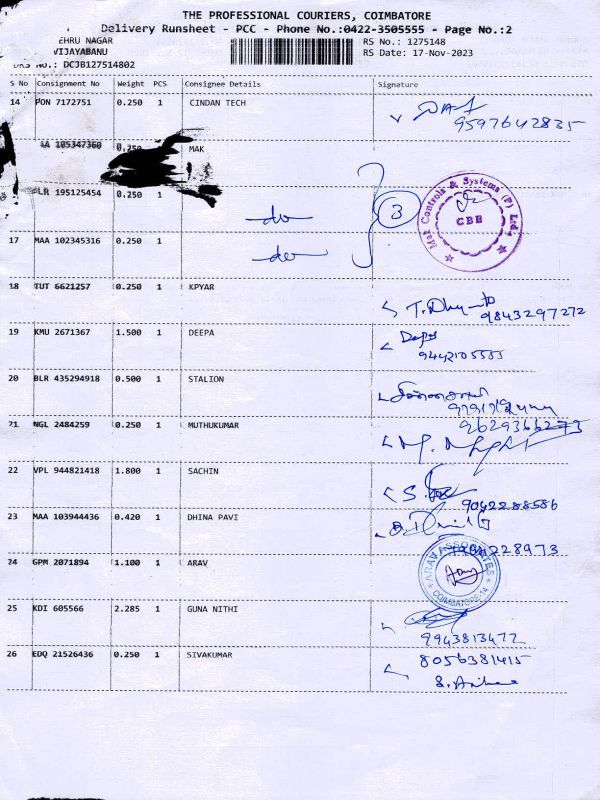 THE PROFESSIONAL COURIERS, COIMBATORE
Delivery Runsheet - PCC - Phone No.:0422-3505555 - Page No.:2
EHRU NAGAR
VIJAYABANU
RS No.: 1275148
RS Date: 17-Nov-2023
DRS No.: DCJB127514802
S No Consignment No Weight PCS Consignee Details Signature
14 PON 7172751 0.250 1 CINDAN TECH
9597642835
AA 105347360 0.250 MAK
BLR 195125454 0.250 1
do
3
Mak Controls & Systems (P) Ltd.,
CBE
17 MAA 102345316 0.250 1
do
18 TUT 6621257 0.250 1 KPYAR
9843297272
19 KMU 2671367 1.500 1 DEEPA
Deepa
9442105555
20 BLR 435294918 0.500 1 STALION
21 NGL 2484259 0.250 1 MUTHUKUMAR
9629366273
22 VPL 944821418 1.800 1 SACHIN
9042288586
23 MAA 103944436 0.420 1 DHINA PAVI
228973
24 GPM 2071894 1.100 1 ARAV
ARAV ASSOCIATES
COIMBATORE-14
25 KDI 605566 2.285 1 GUNA NITHI
9943813472
26 EDQ 21526436 0.250 1 SIVAKUMAR
8056381415